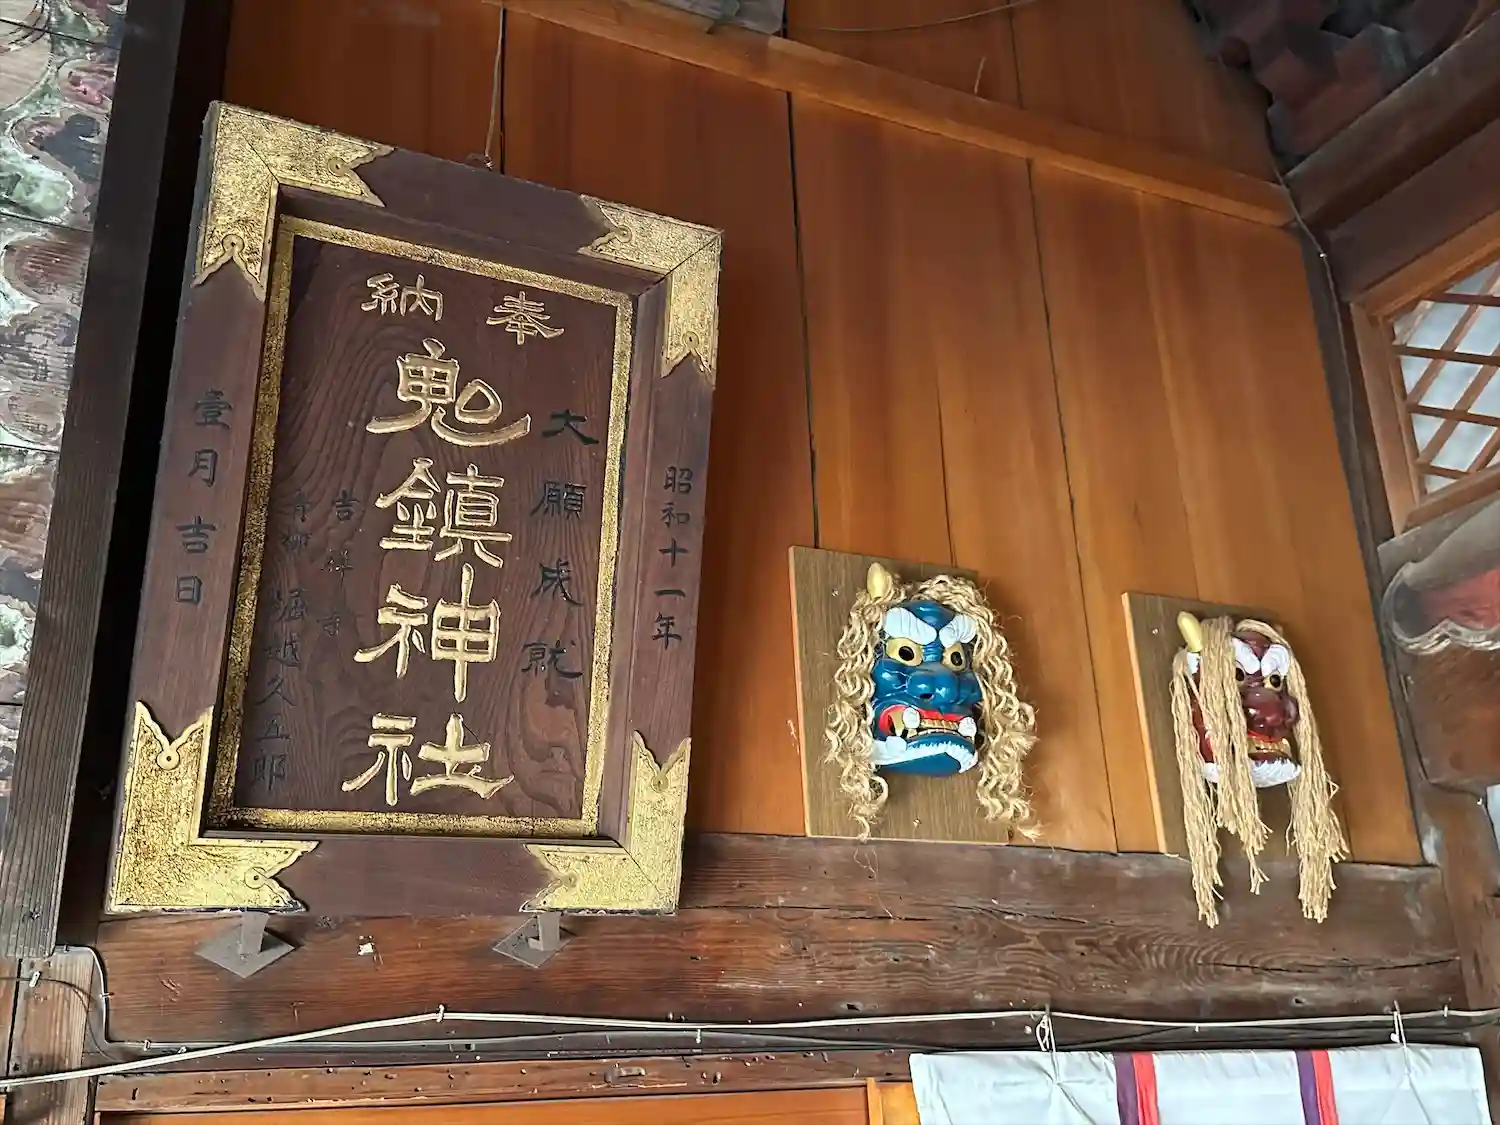 奉納
昭和十一年
大願成就
鬼鎮神社
吉祥寺
堀越久五郎
壹月吉日